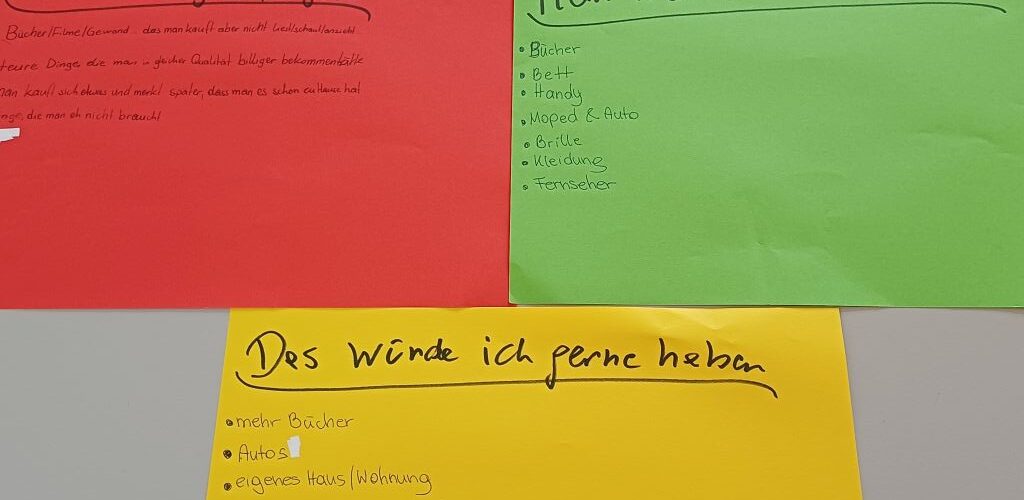 Bücher/Filme/Gewand das man kauft aber nicht liest/schaut/anzieht
teure Dinge, die man in gleicher Qualität billiger bekommen hätte
man kauft sich etwas und merkt später, dass man es schon zu Hause hat
die man eh nicht braucht
• Bücher
• Bett
• Handy
• Moped & Auto
• Brille
• Kleidung
• Fernseher
Das würde ich gerne haben
• mehr Bücher
• Autos
• eigenes Haus/Wohnung